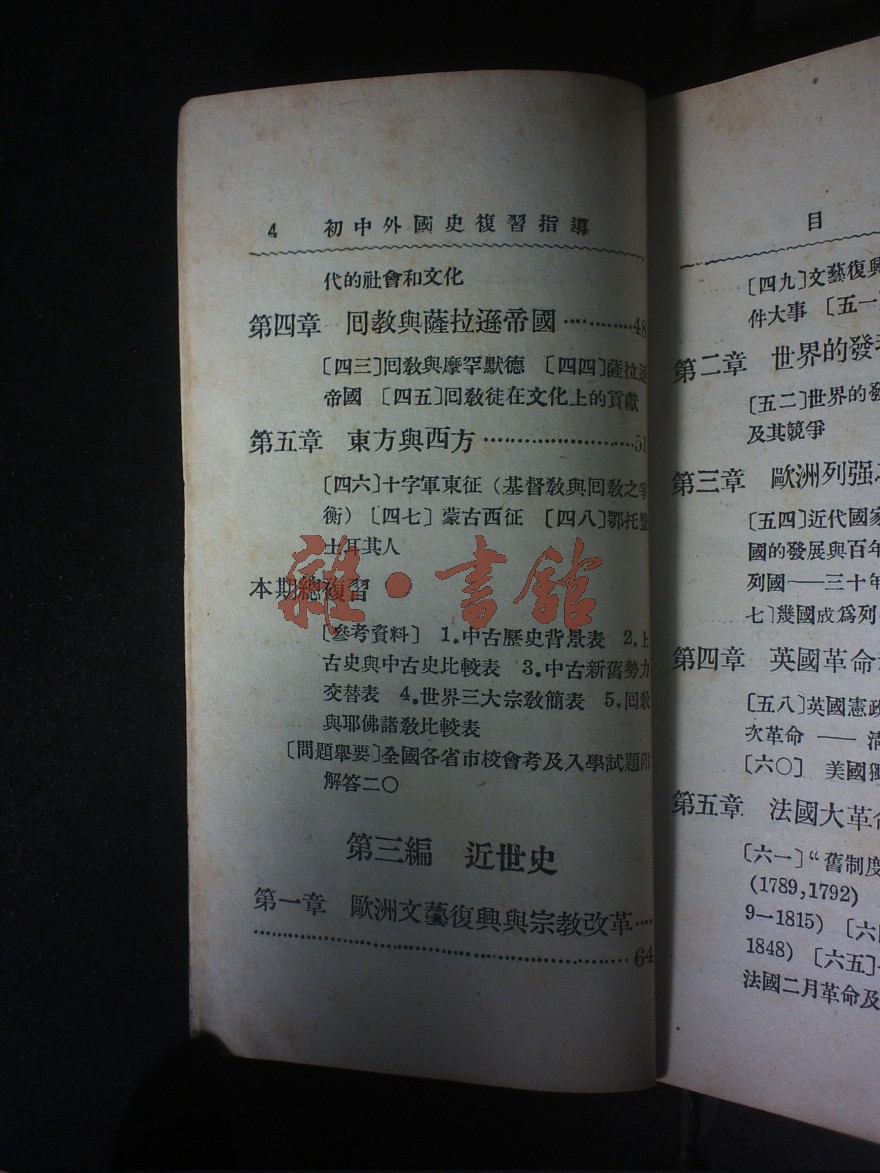 4 初中外國史複習指導
代的社會和文化
第四章 回教與薩拉遜帝國…………48
〔四三〕回敎與摩罕默德 〔四四〕薩拉遜
帝國 〔四五〕回敎徒在文化上的貢獻
第五章 東方與西方……………………51
〔四六〕十字軍東征（基督敎與回敎之爭
衡）〔四七〕蒙古西征 〔四八〕鄂托曼
土耳其人
本期總複習
〔參考資料〕 1.中古歷史背景表 2.上
古史與中古史比較表 3.中古新舊勢力
交替表 4.世界三大宗敎簡表 5.回敎
與耶佛諸敎比較表
〔問題舉要〕全國各省市校會考及入學試題附
解答二〇
第三編 近世史
第一章 歐洲文藝復興與宗教改革……
……………………………………64
雜·書館
目
〔四九〕文藝復興
件大事 〔五一〕
第二章 世界的發
〔五二〕世界的發
及其競爭
第三章 歐洲列强
〔五四〕近代國家
國的發展與百年
列國——三十年
七〕幾國成爲列
第四章 英國革命
〔五八〕英國憲政
次革命 —— 清
〔六〇〕 美國獨
第五章 法國大革命
〔六一〕“舊制度
(1789,1792)
9—1815) 〔六四
1848) 〔六五〕
法國二月革命及